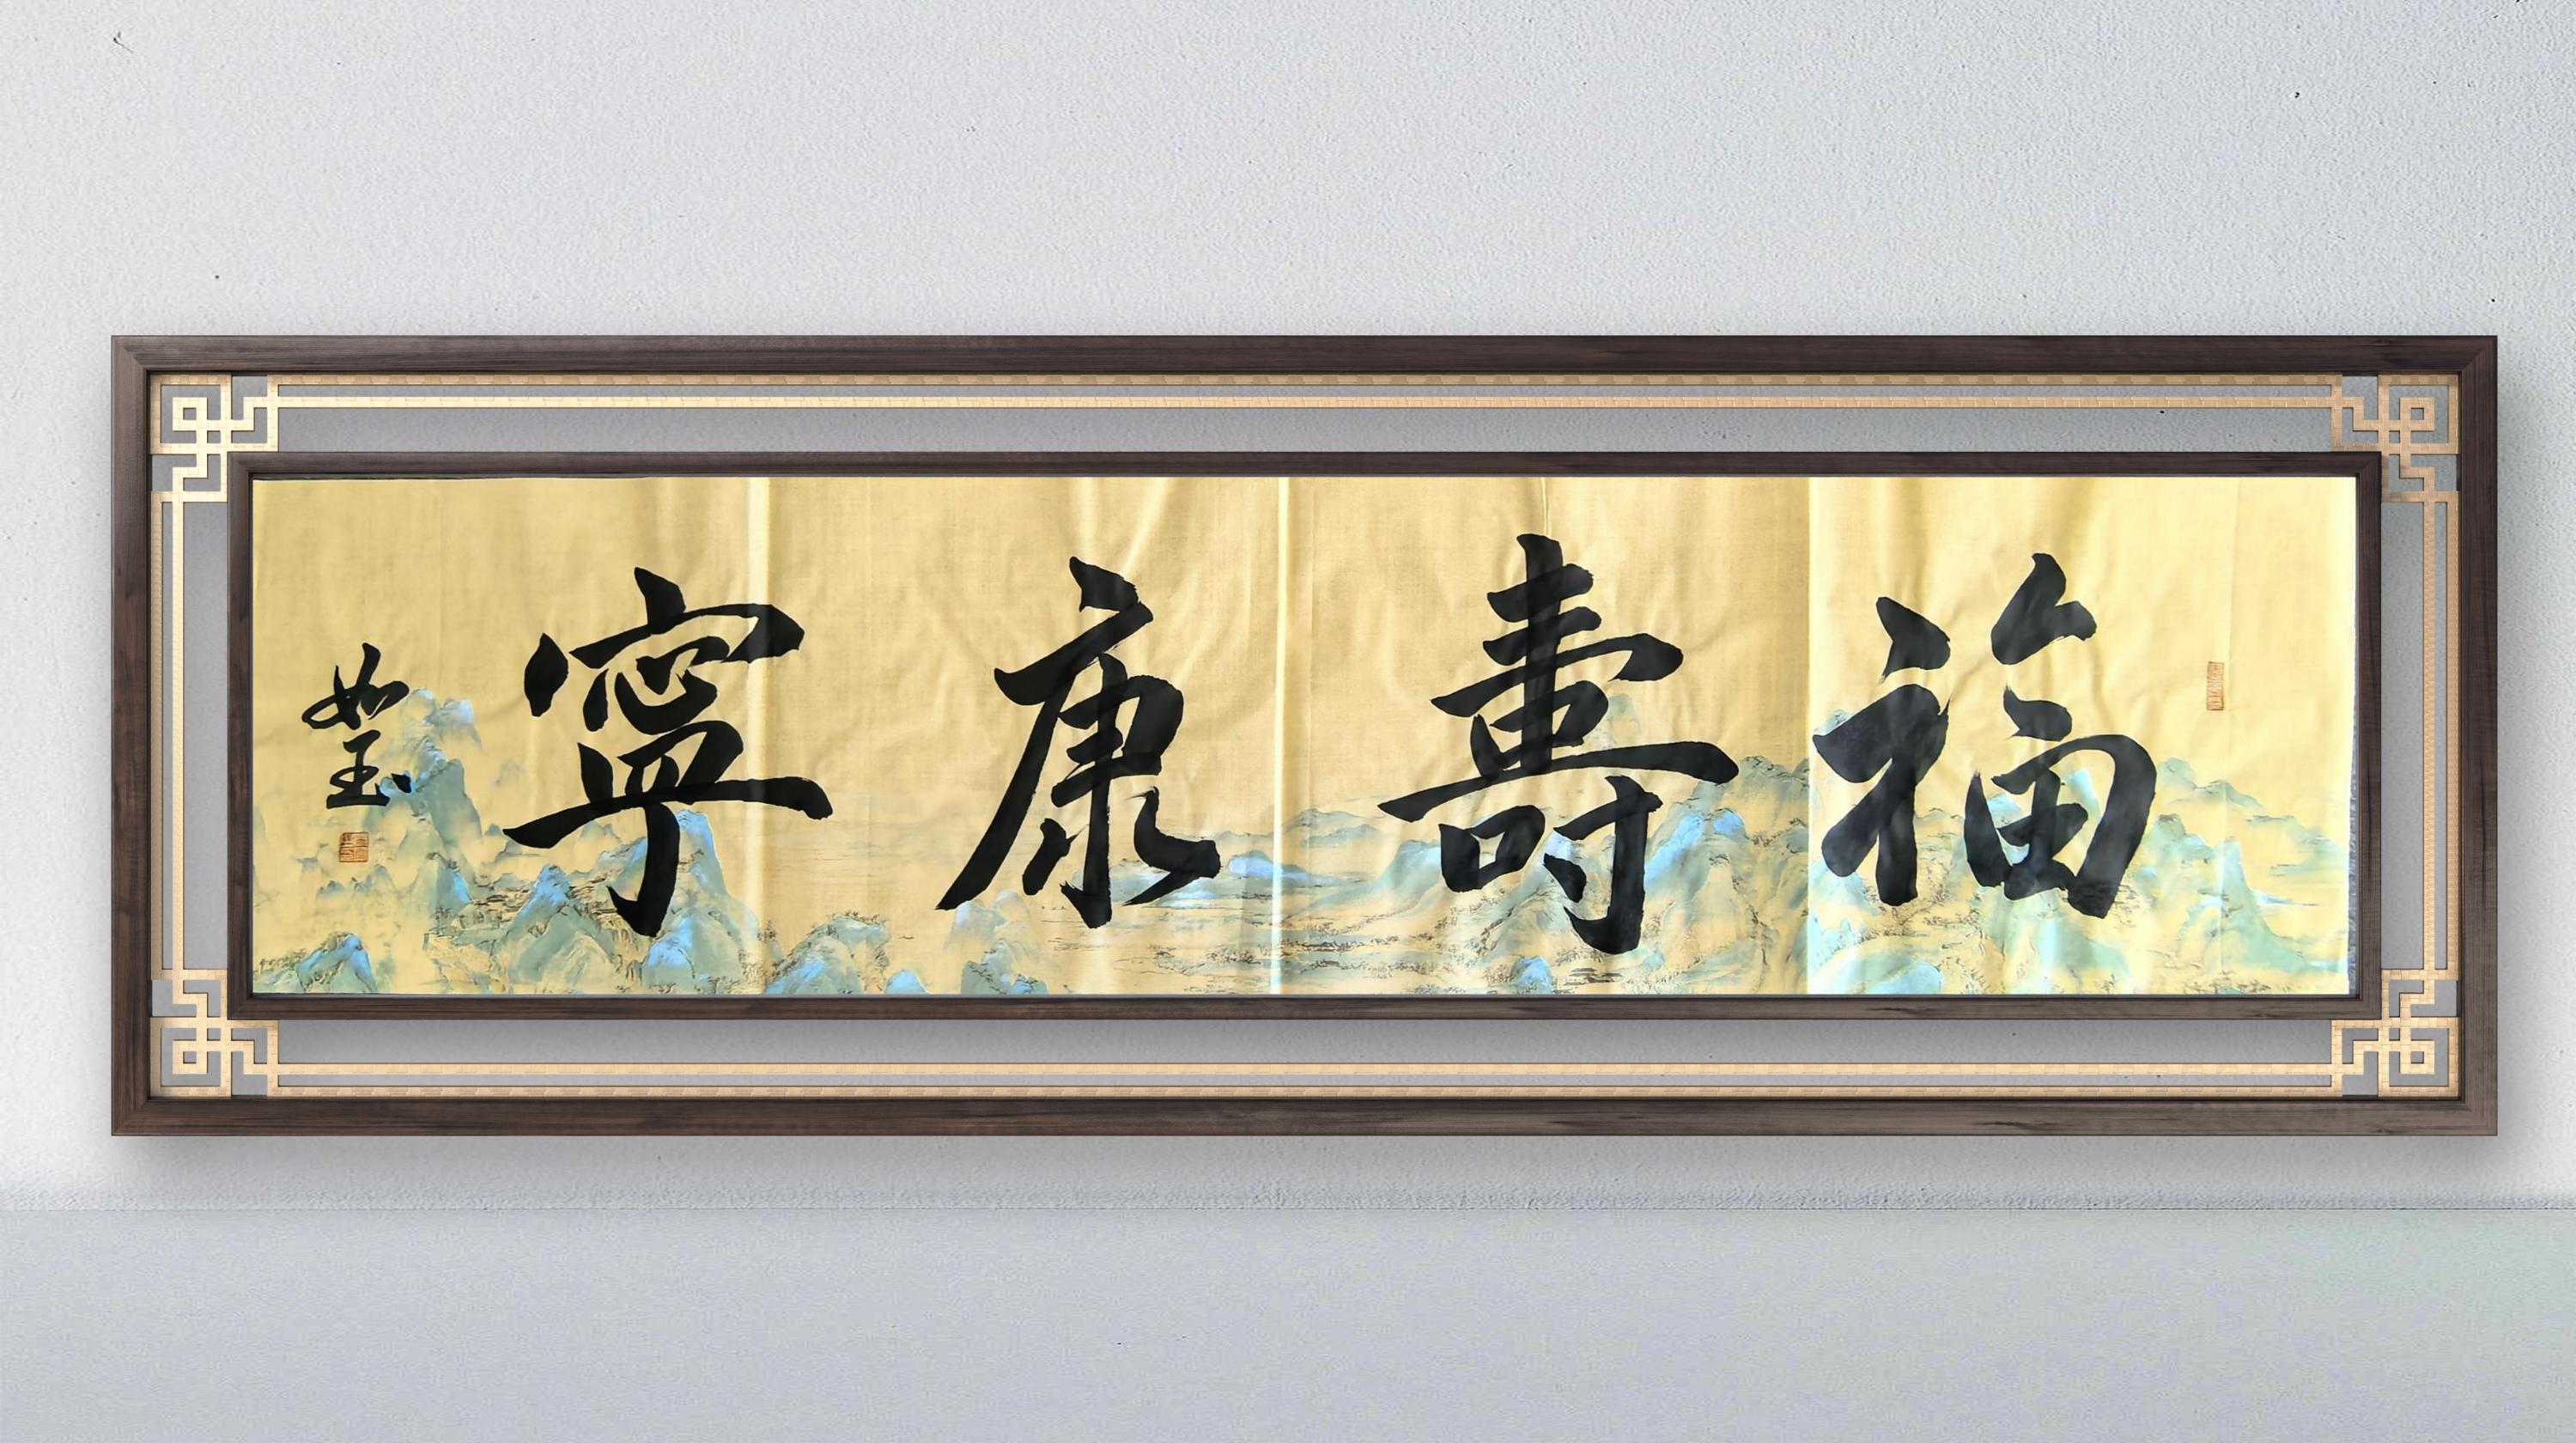 福壽康寧
如玉